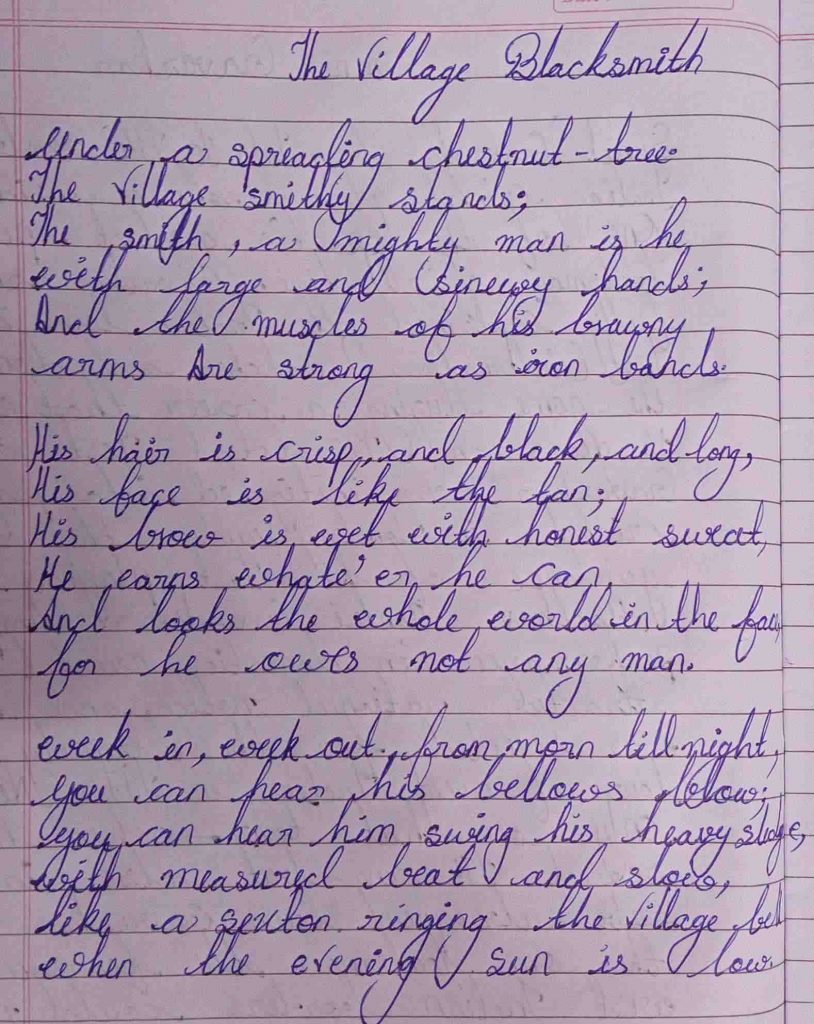 The Village Blacksmith
Under a spreading chestnut-tree.
The Village smithy stands;
The smith, a mighty man is he,
with large and sinewy hands;
And the muscles of his brawny
arms Are strong as iron bands.
His hair is crisp, and black, and long,
His face is like the tan;
His brow is wet with honest sweat,
He earns whate'er he can,
And looks the whole world in the face,
for he owes not any man.
week in, week out, from morn till night,
you can hear his bellows blow;
you can hear him swing his heavy sledge,
with measured beat and slow,
like a sexton ringing the village bell
when the evening sun is low.